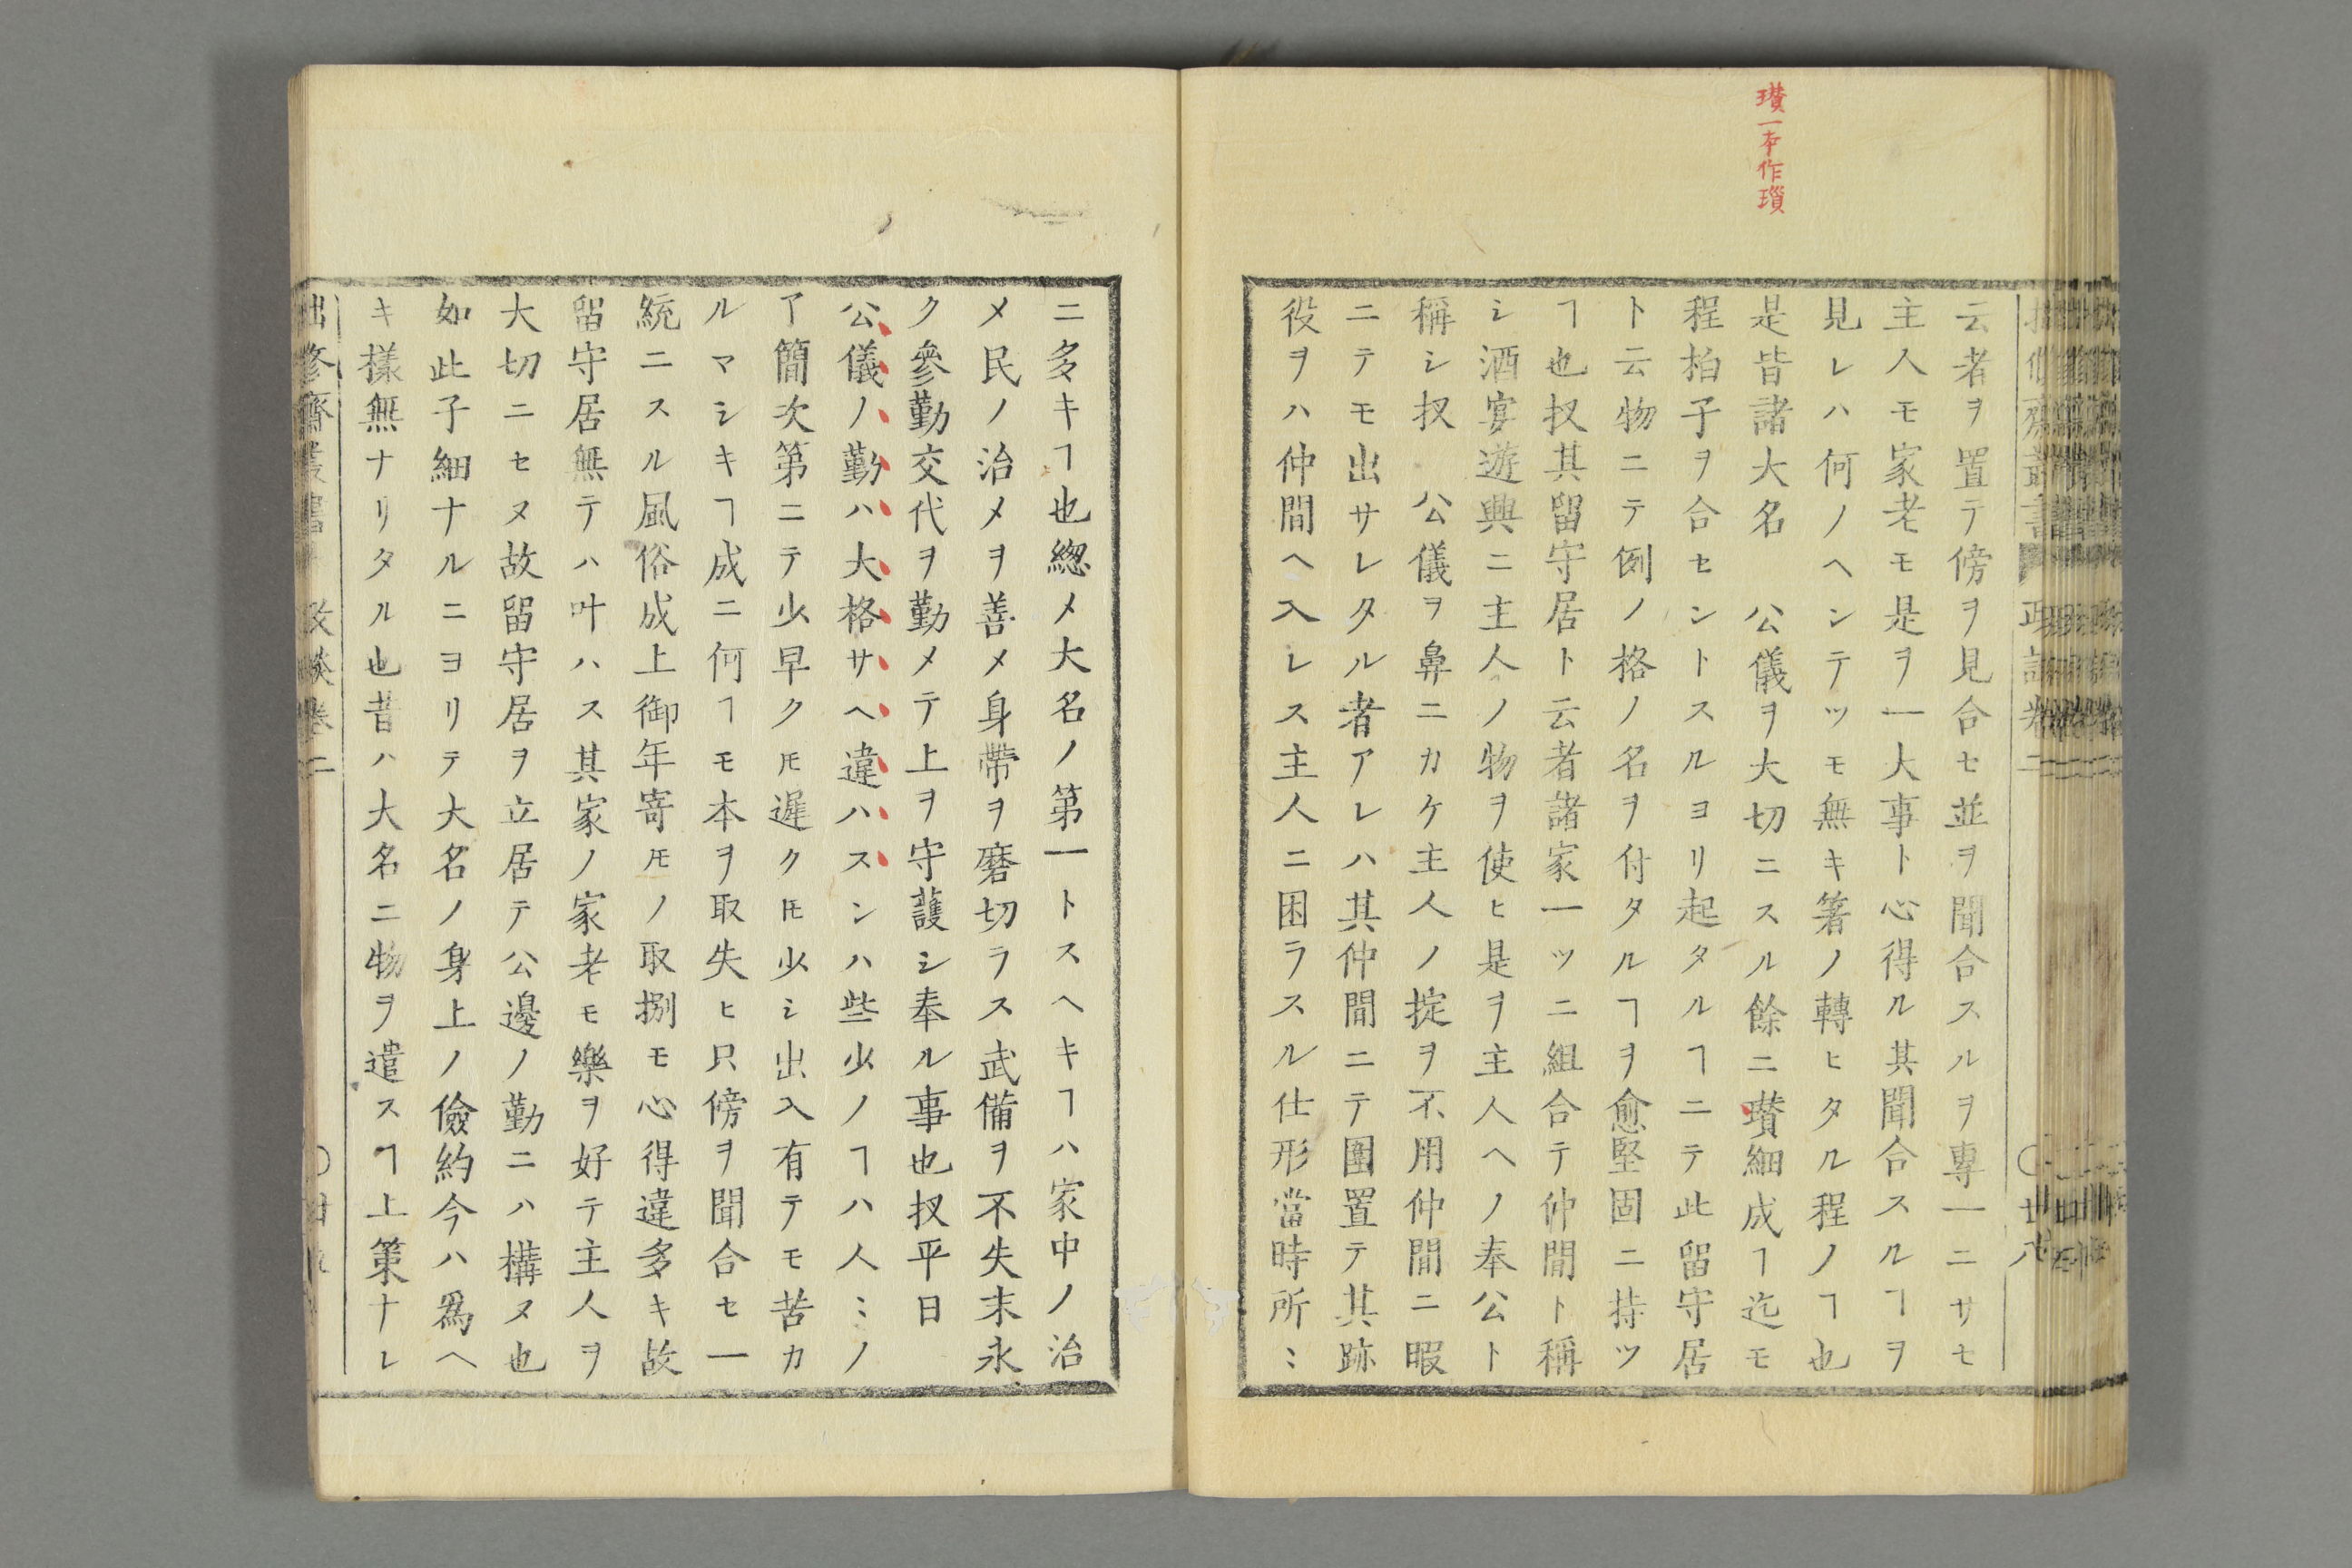 瓚一本作瑣
云者ヲ置テ傍ヲ見合セ並ヲ聞合スルヲ專一ニサセ
主人モ家老モ是ヲ一大事ト心得ル其聞合スルヿヲ
見レハ何ノヘンテツモ無キ箸ノ轉ヒタル程ノヿ也
是皆諸大名　公儀ヲ大切ニスル餘ニ瓚細成ヿ迄モ
程拍子ヲ合セントスルヨリ起タルヿニテ此留守居
ト云物ニテ例ノ格ノ名ヲ付タルヿヲ愈堅固ニ持ツ
ヿ也扠其留守居ト云者諸家一ツニ組合テ仲間ト稱
シ酒宴遊興ニ主人ノ物ヲ使ヒ是ヲ主人ヘノ奉公ト
稱シ扠　公儀ヲ鼻ニカケ主人ノ掟ヲ不用仲間ニ暇
ニテモ出サレタル者アレハ其仲間ニテ圍置テ其跡
役ヲハ仲間ヘ入レス主人ニ困ラスル仕形當時所〻
ニ多キヿ也總メ大名ノ第一トスヘキヿハ家中ノ治
メ民ノ治メヲ善メ身帶ヲ磨切ラス武備ヲ不失末永
ク參勤交代ヲ勤メテ上ヲ守護シ奉ル事也扠平日
公儀ノ勤ハ大格サヘ違ハスンハ些少ノヿハ人〻ノ
了簡次第ニテ少早クモ遲クモ少シ出入有テモ苦カ
ルマシキヿ成ニ何ヿモ本ヲ取失ヒ只傍ヲ聞合セ一
統ニスル風俗成上御年寄𪜈ノ取捌モ心得違多キ故
留守居無テハ叶ハス其家ノ家老モ樂ヲ好テ主人ヲ
大切ニセヌ故留守居ヲ立居テ公邊ノ勤ニハ構ヌ也
如此子細ナルニヨリテ大名ノ身上ノ儉約今ハ爲ヘ
キ樣無ナリタル也昔ハ大名ニ物ヲ遣スヿ上策ナレ